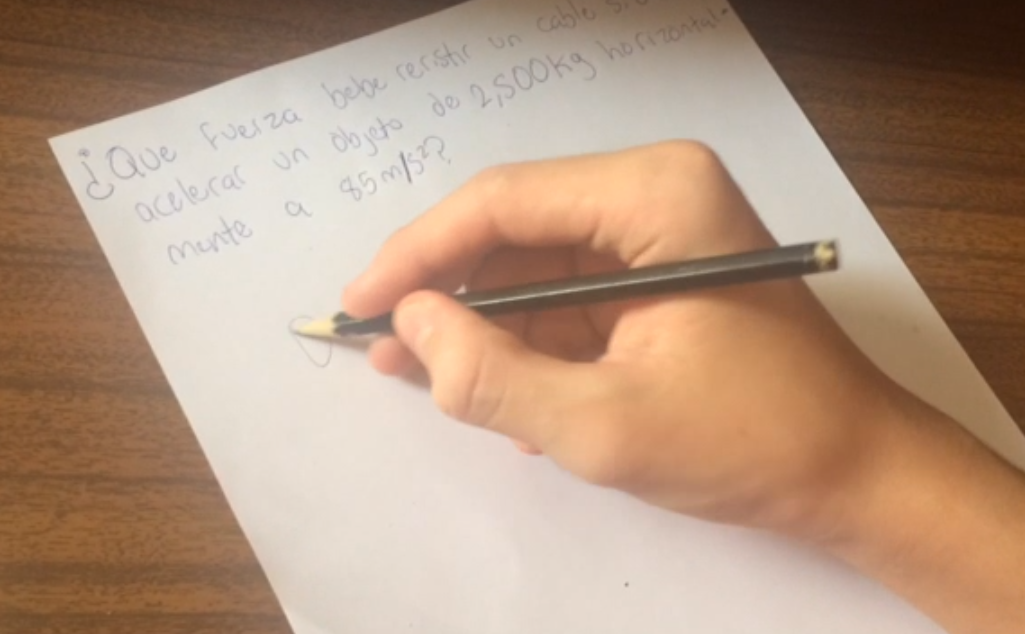 ¿Que fuerza bebe resistir un cable
acelerar un objeto de 2,500kg horizontal-
mente a 85m/s²?